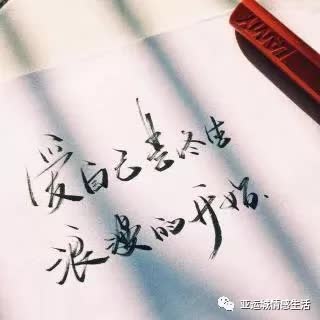 LAMY
爱自己是终生
浪漫的开始.
亚运城情感生活